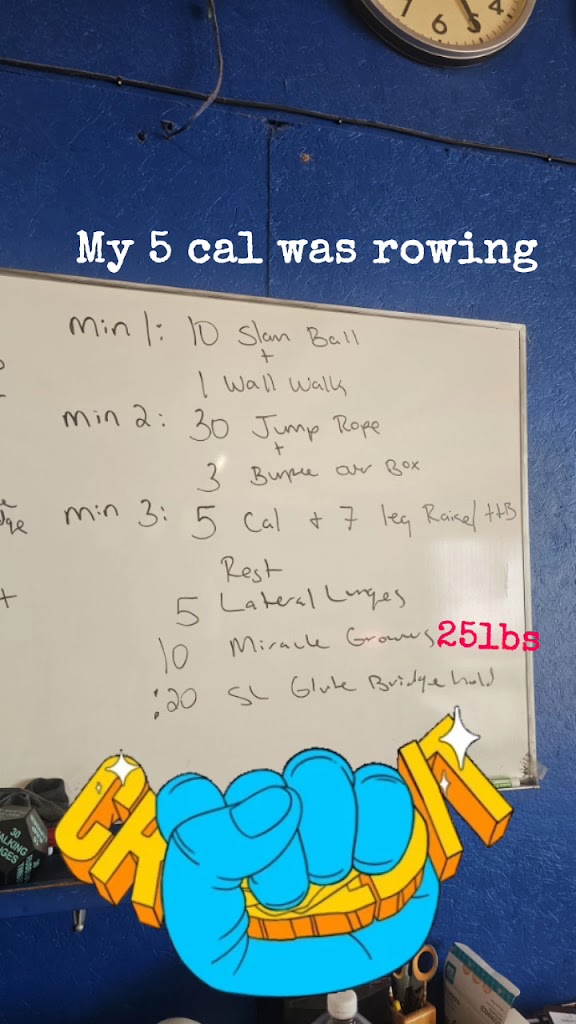 4
5
6
7
My 5 cal was rowing
min 1: 10 Slam Ball
+
1 Wall Walk
min 2: 30 Jump Rope
+
3 Burpee over Box
min 3: 5 Cal + 7 leg Raise/ TTB
Rest
5 Lateral Lunges
10 Miracle Growers 25lbs
:20 SL Glute Bridge hold
30